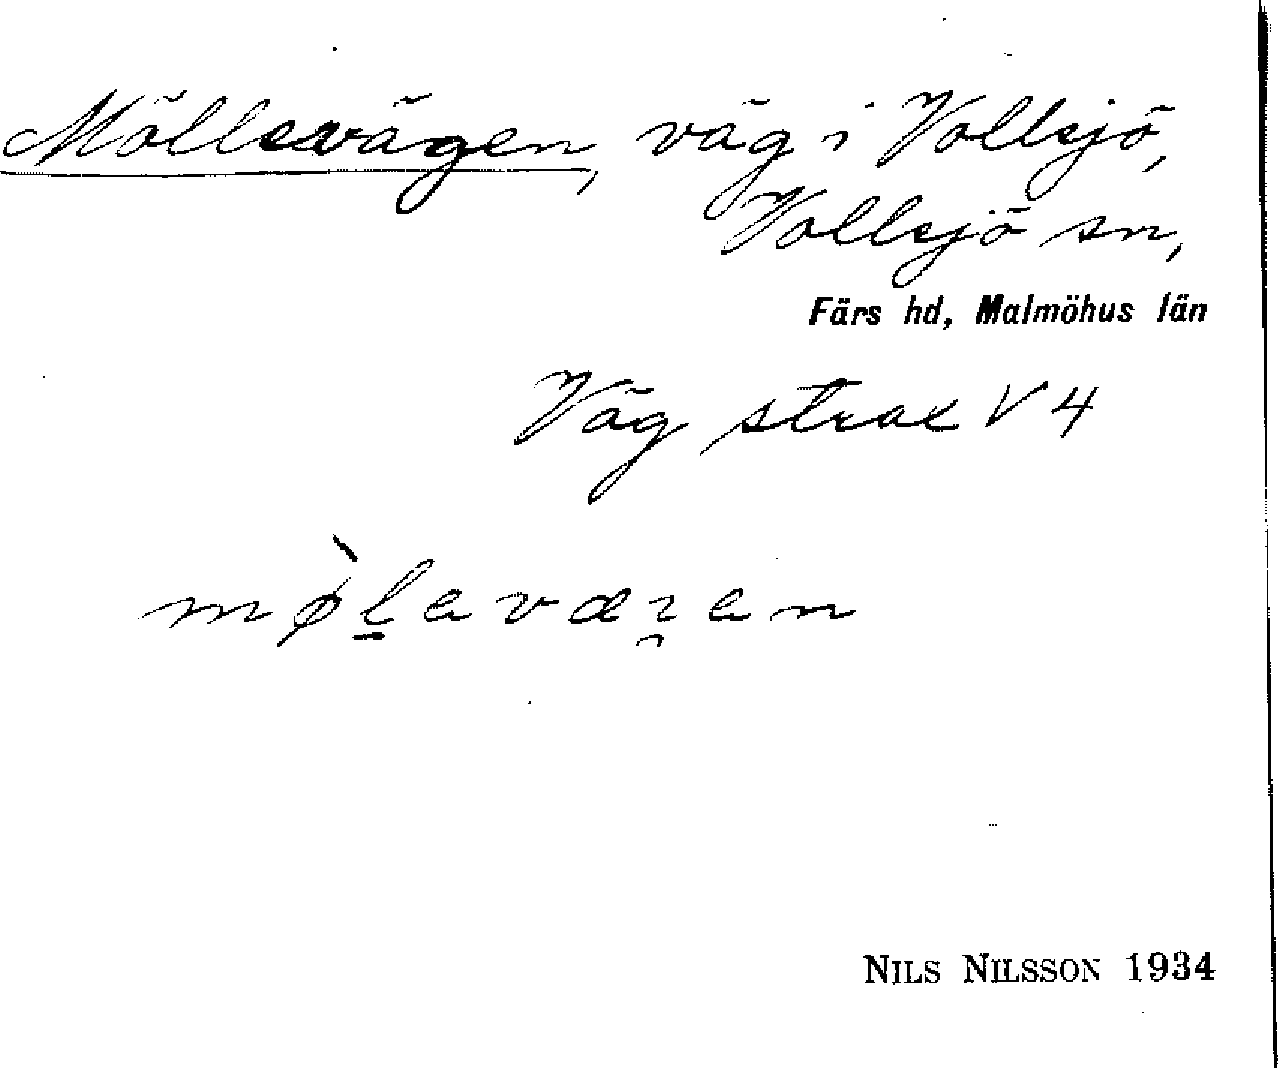 Möllevägen, väg i Vollsjö,
Vollsjö sn,
Färs hd, Malmöhus län
Väg strax V 4
mø̀l̠avæɿ̯an
NILS NILSSON 1934